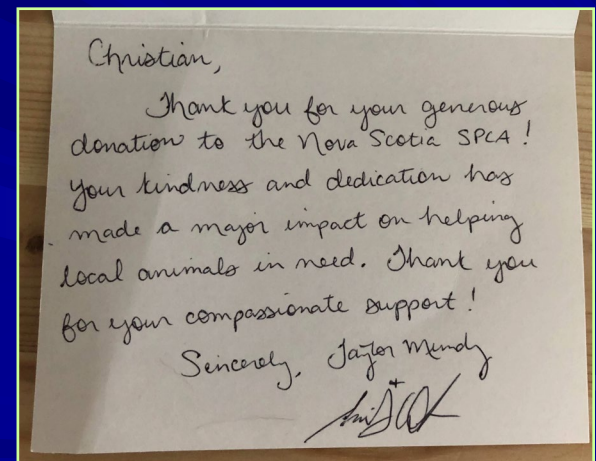 Christian,
Thank you for your generous
donation to the Nova Scotia SPCA!
Your kindness and dedication has
made a major impact on helping
local animals in need. Thank you
for your compassionate support!
Sincerely, Taylor Mundy